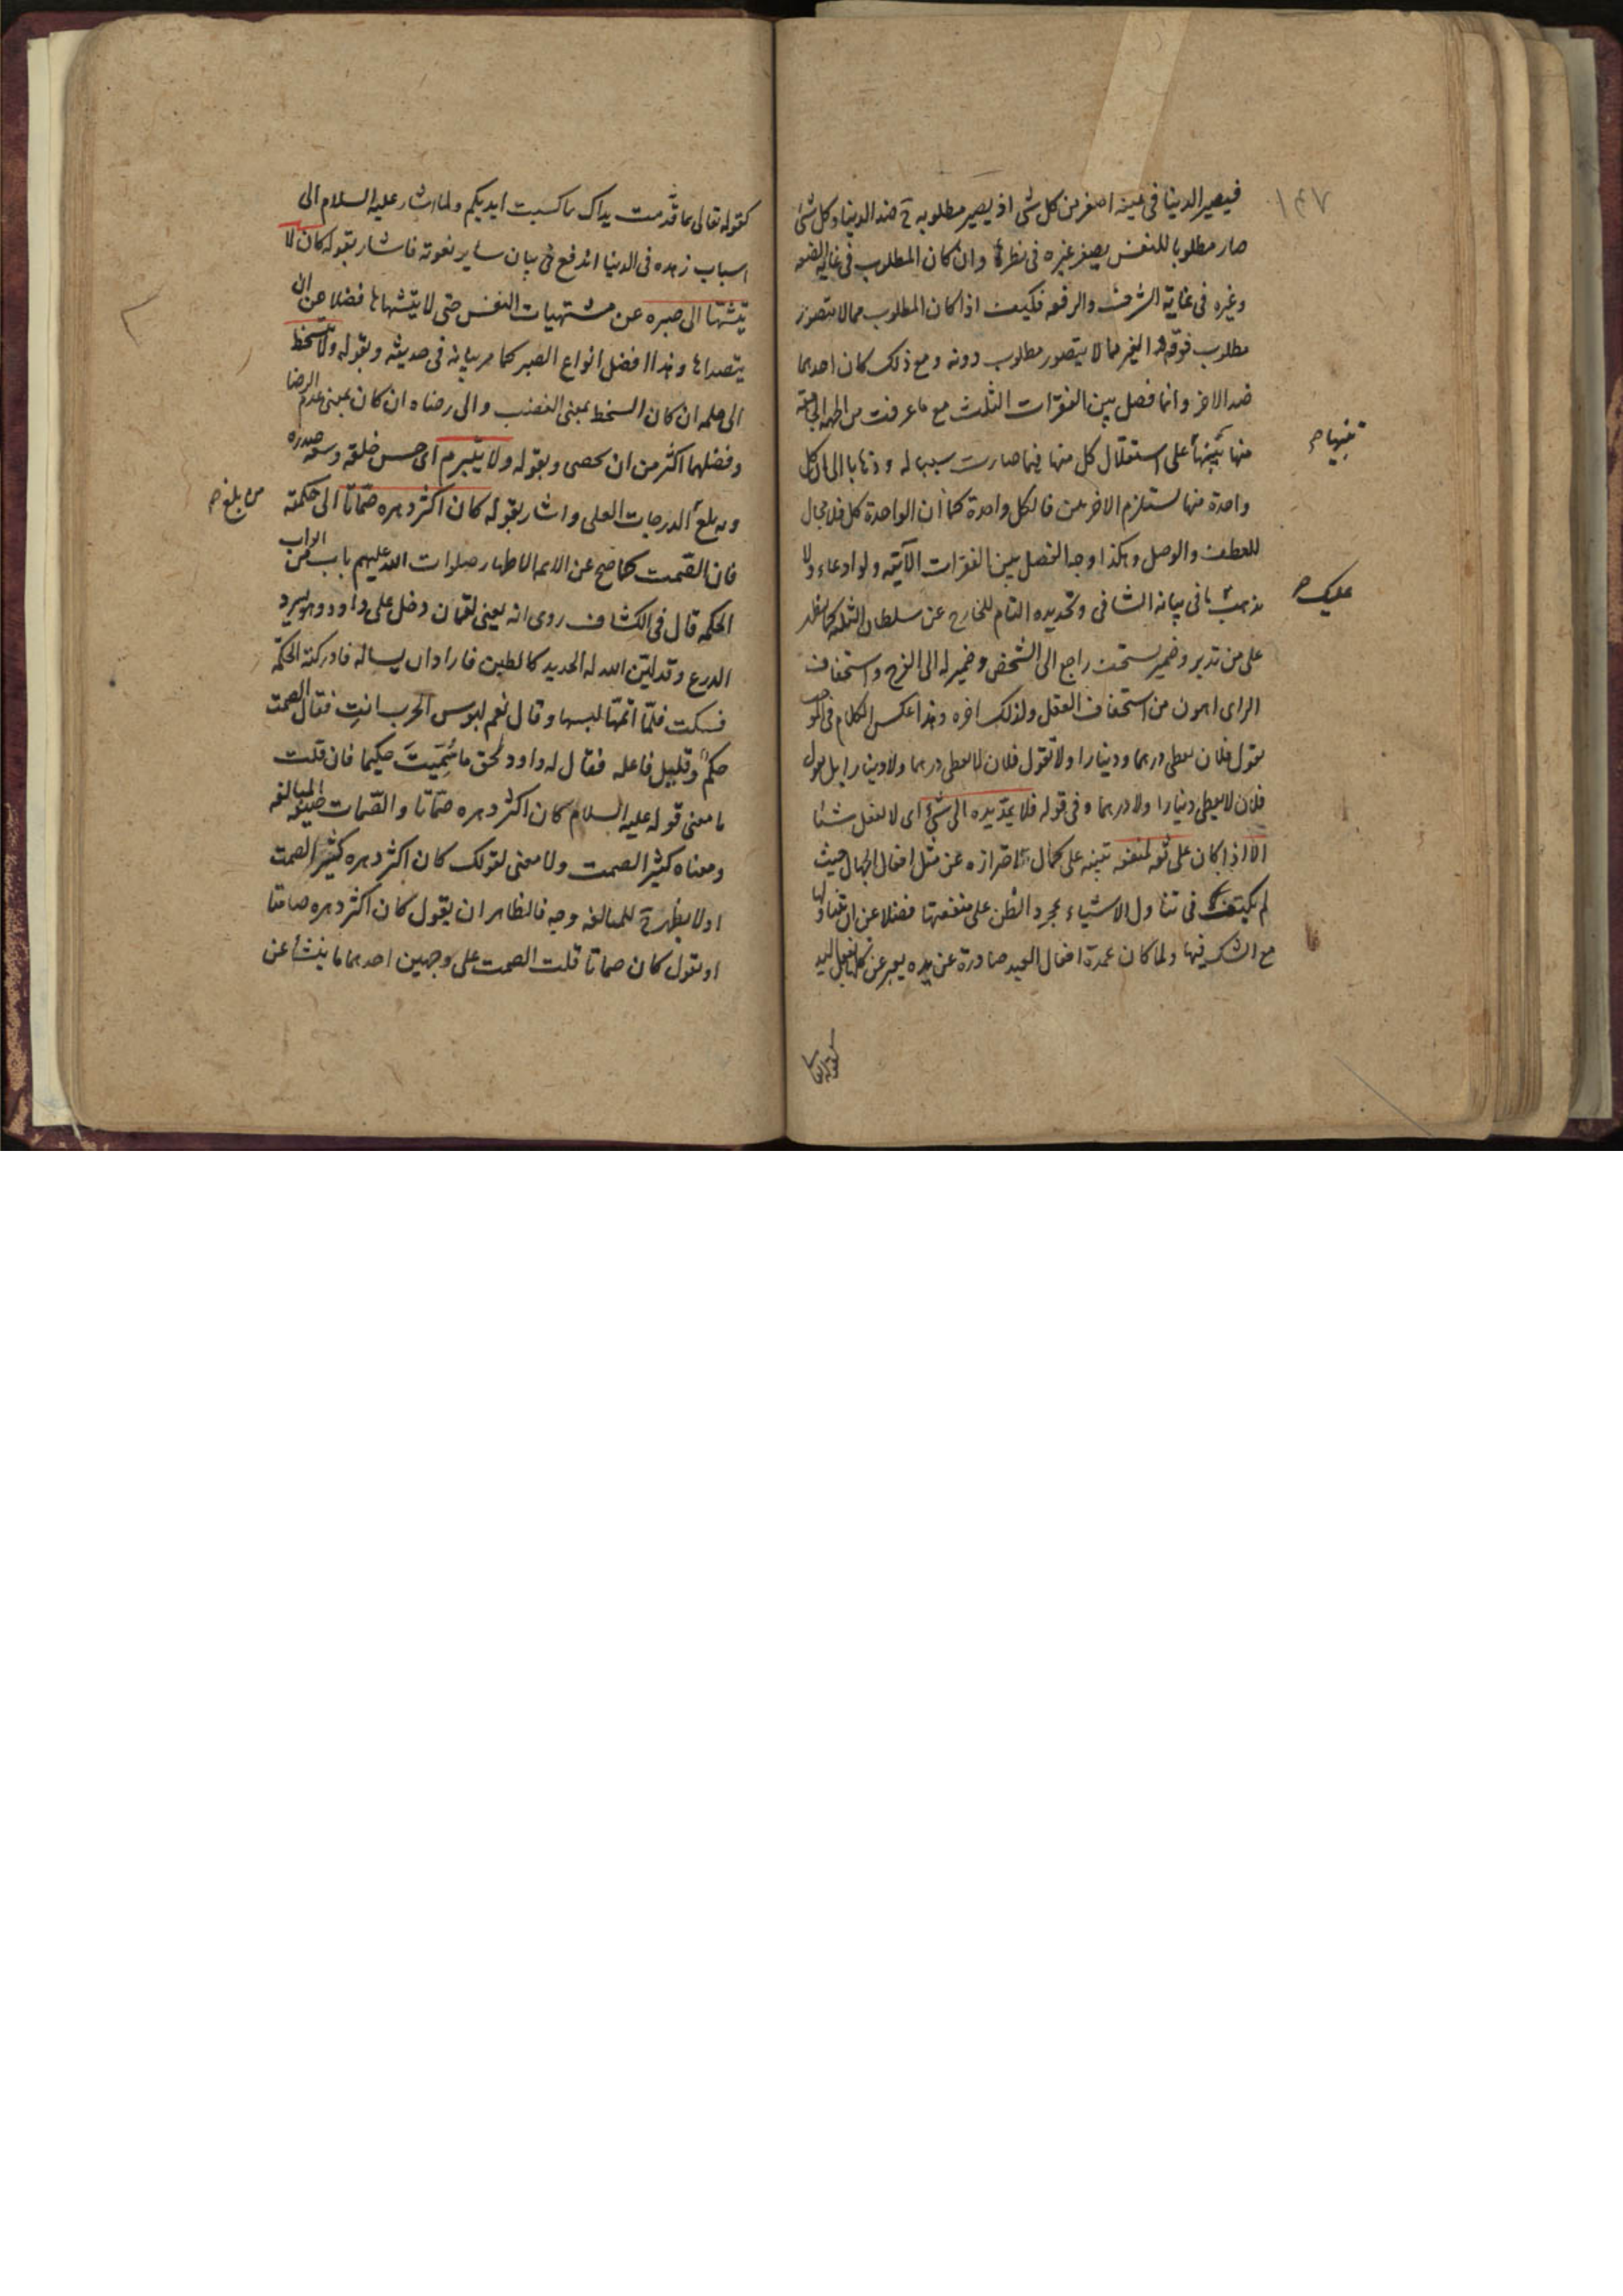 ١٤٧
فيصير الدنيا في عينه اصغر من كل شئ اذ يصير مطلوبه ح ضد الدنيا وكل شئ
صار مطلوبا للنفس يصغر غيره في نظره وان كان المطلوب في غاية الضعه
وغيره في غاية الشرف والرفعه فكيف اذا كان المطلوب مما لا يتصور
مطلوب فوقه والغير مما لا يتصور مطلوب دونه ومع ذلك كان احدهما
ضد الاخر وانما فصل بين الفقرات الثلث مع ما عرفت من الجهة الجامعة
منها تنبيها على استقلال كل منها فيما صارت سببا له وذهابا الى ان كل
تنبيها
واحدة منها يستلزم الاخريين فالكل واحدة كما ان الواحدة كل فلا مجال
للعطف والوصل وهكذا وجه الفصل بين الفقرات الآتيه ولو ادعاء ولا
عليك
يذهب في بيانه الشافي وتحديده التام للخارج عن سلطان الثلثه كما يظهر
على من تدبر وضمير يستخف راجع الى الشخص وضمير له الى الفرج واستخفاف
الراى اهون من استخفاف العقل ولذلك اخره وهذا عكس الكلام في
تقول فلان يعطى درهما ودينارا ولا تقول فلان لا يعطى درهما ولا دينارا بل تقول
فلان لا يعطى دينارا ولا درهما وفى قوله فلا يمد يده الى شئ اى لا يفعل شئا
الا اذا كان على ثقه لمنفعه تنبيه على كمال احترازه عن مثل افعال الجهال حيث
لم يكتف في تناول الاشياء بمجرد الظن على منفعتها فضلا عن ان يتناولها
مع الشك فيها ولما كان عمدة افعال العبد صادرة عن يده يعبر عن كلها بفعل اليد
كقوله تعالى
كقوله تعالى بما قدمت يداك ما كسبت ايديكم ولما اشار عليه السلام الى
اسباب زهده في الدنيا اندفع في بيان ساير نعوته فاشار بقوله كان لا
يتشهّا الى صبره عن مشتهيات النفس حتى لا يتشهاها فضلا عن ان
يتصداها وهذا افضل انواع الصبر كما مر بيانه في حديثه وبقوله ولا يتسخط
الى حلمه ان كان السخط بمعنى الغضب والى رضاه ان كان بمعنى عدم الرضا
وفضلهما اكثر من ان يحصى وبقوله ولا يتبرم اى حسن خلقه وسعه صدره
وبه بلغ الدرجات العلى واشار بقوله كان اكثر دهره صمّاتا الى حكمته
من بلغ
فان الصّمت كما صح عن الائمه الاطهار صلوات الله عليهم باب من ابواب
الحكمه قال في الكشاف روى انه يعنى لقمان دخل على داود وهو يسرد
الدرع وقد ليّن الله له الحديد كالطين فاراد ان يساله فادركته الحكمة
فسكت فلمّا اتمّها لبسها وقال نعم لبوس الحرب انتِ فقال الصمت
حكمٌ وقليل فاعله فقال له داود لحق ما سُمّيتَ حكيما فان قلت
ما معنى قوله عليه السلام كان اكثر دهره صمّاتا والصّمات صيغه المبالغه
ومعناه كثير الصمت ولا معنى لقولك كان اكثر دهره كثير الصمت
اذ لا يظهر ح للمبالغه وجه فالظاهر ان يقول كان اكثر دهره صامتا
او يقول كان صماتا قلت الصمت على وجهين احدهما ما ينشأ عن